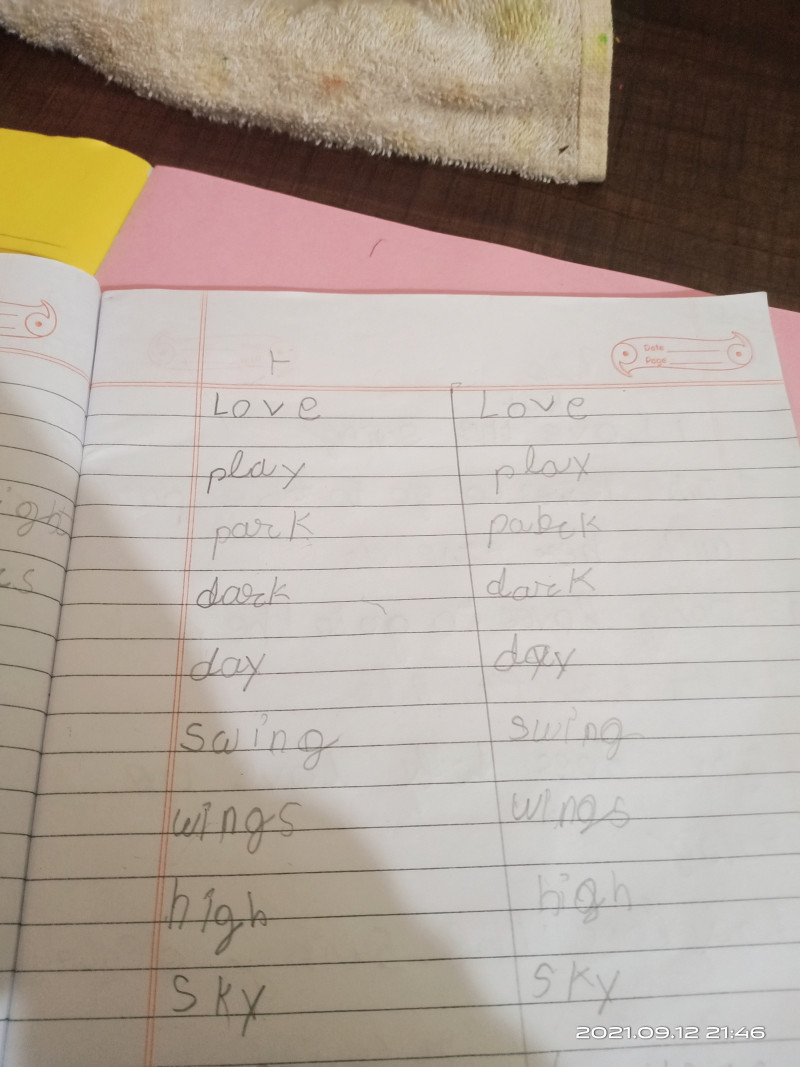 Date
Page
Love Love
play play
park pabck
dark dark
day day
swing swing
wings wings
high high
sky sky
2021.09.12 21:46